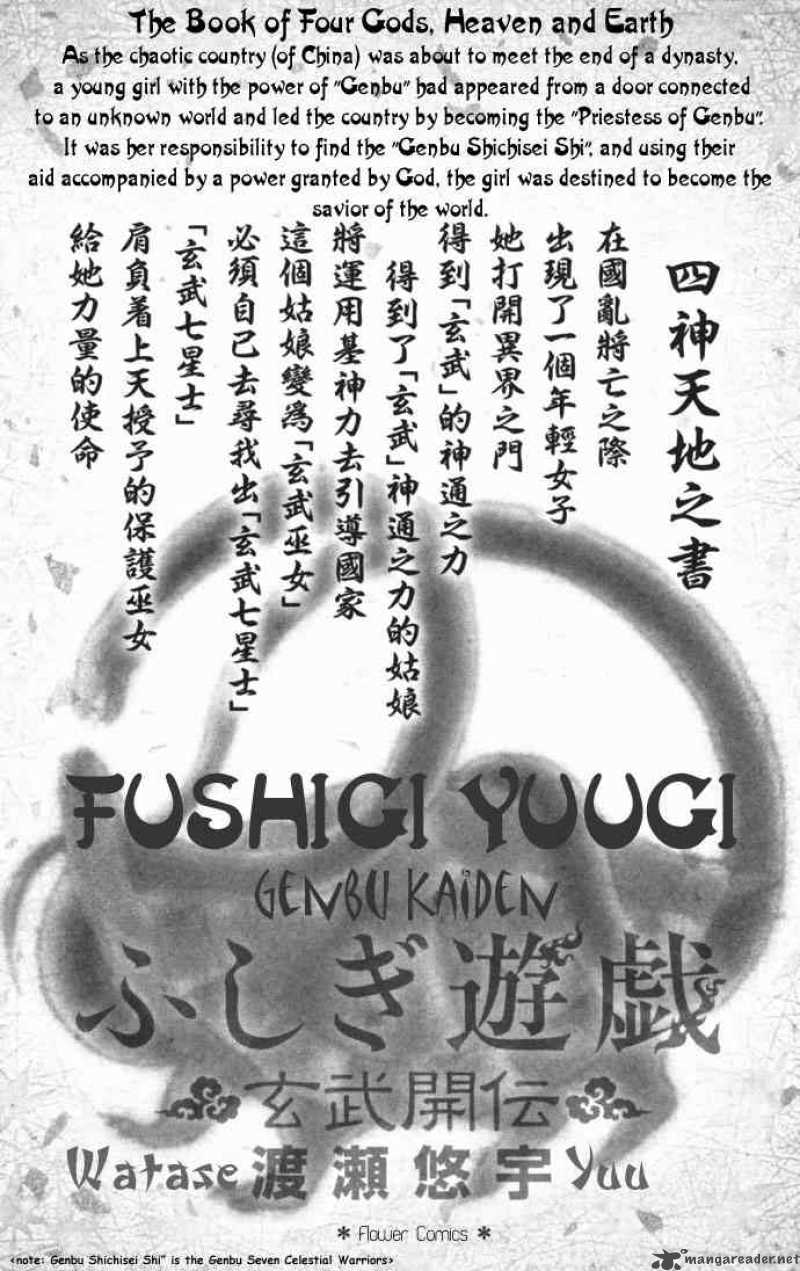 The Book of Four Gods, Heaven and Earth
As the chaotic country (of China) was about to meet the end of a dynasty,
a young girl with the power of "Genbu" had appeared from a door connected
to an unknown world and led the country by becoming the "Priestess of Genbu".
It was her responsibility to find the "Genbu Shichisei Shi", and using their
aid accompanied by a power granted by God, the girl was destined to become the
savior of the world.
四神天地之書
在國亂將亡之際
出現了一個年輕女子
她打開異界之門
得到「玄武」的神通之力
得到了「玄武」神通之力的姑娘
將運用基神力去引導國家
這個姑娘變爲「玄武巫女」
必須自己去尋我出「玄武七星士」
「玄武七星士」
肩負着上天授予的保護巫女
給她力量的使命
FUSHIGI YUUGI
GENBU KAIDEN
ふしぎ遊戯
玄武開伝
Watase 渡瀬悠宇 Yuu
* Flower Comics *
<note: Genbu Shichisei Shi" is the Genbu Seven Celestial Warriors>
mangareader.net